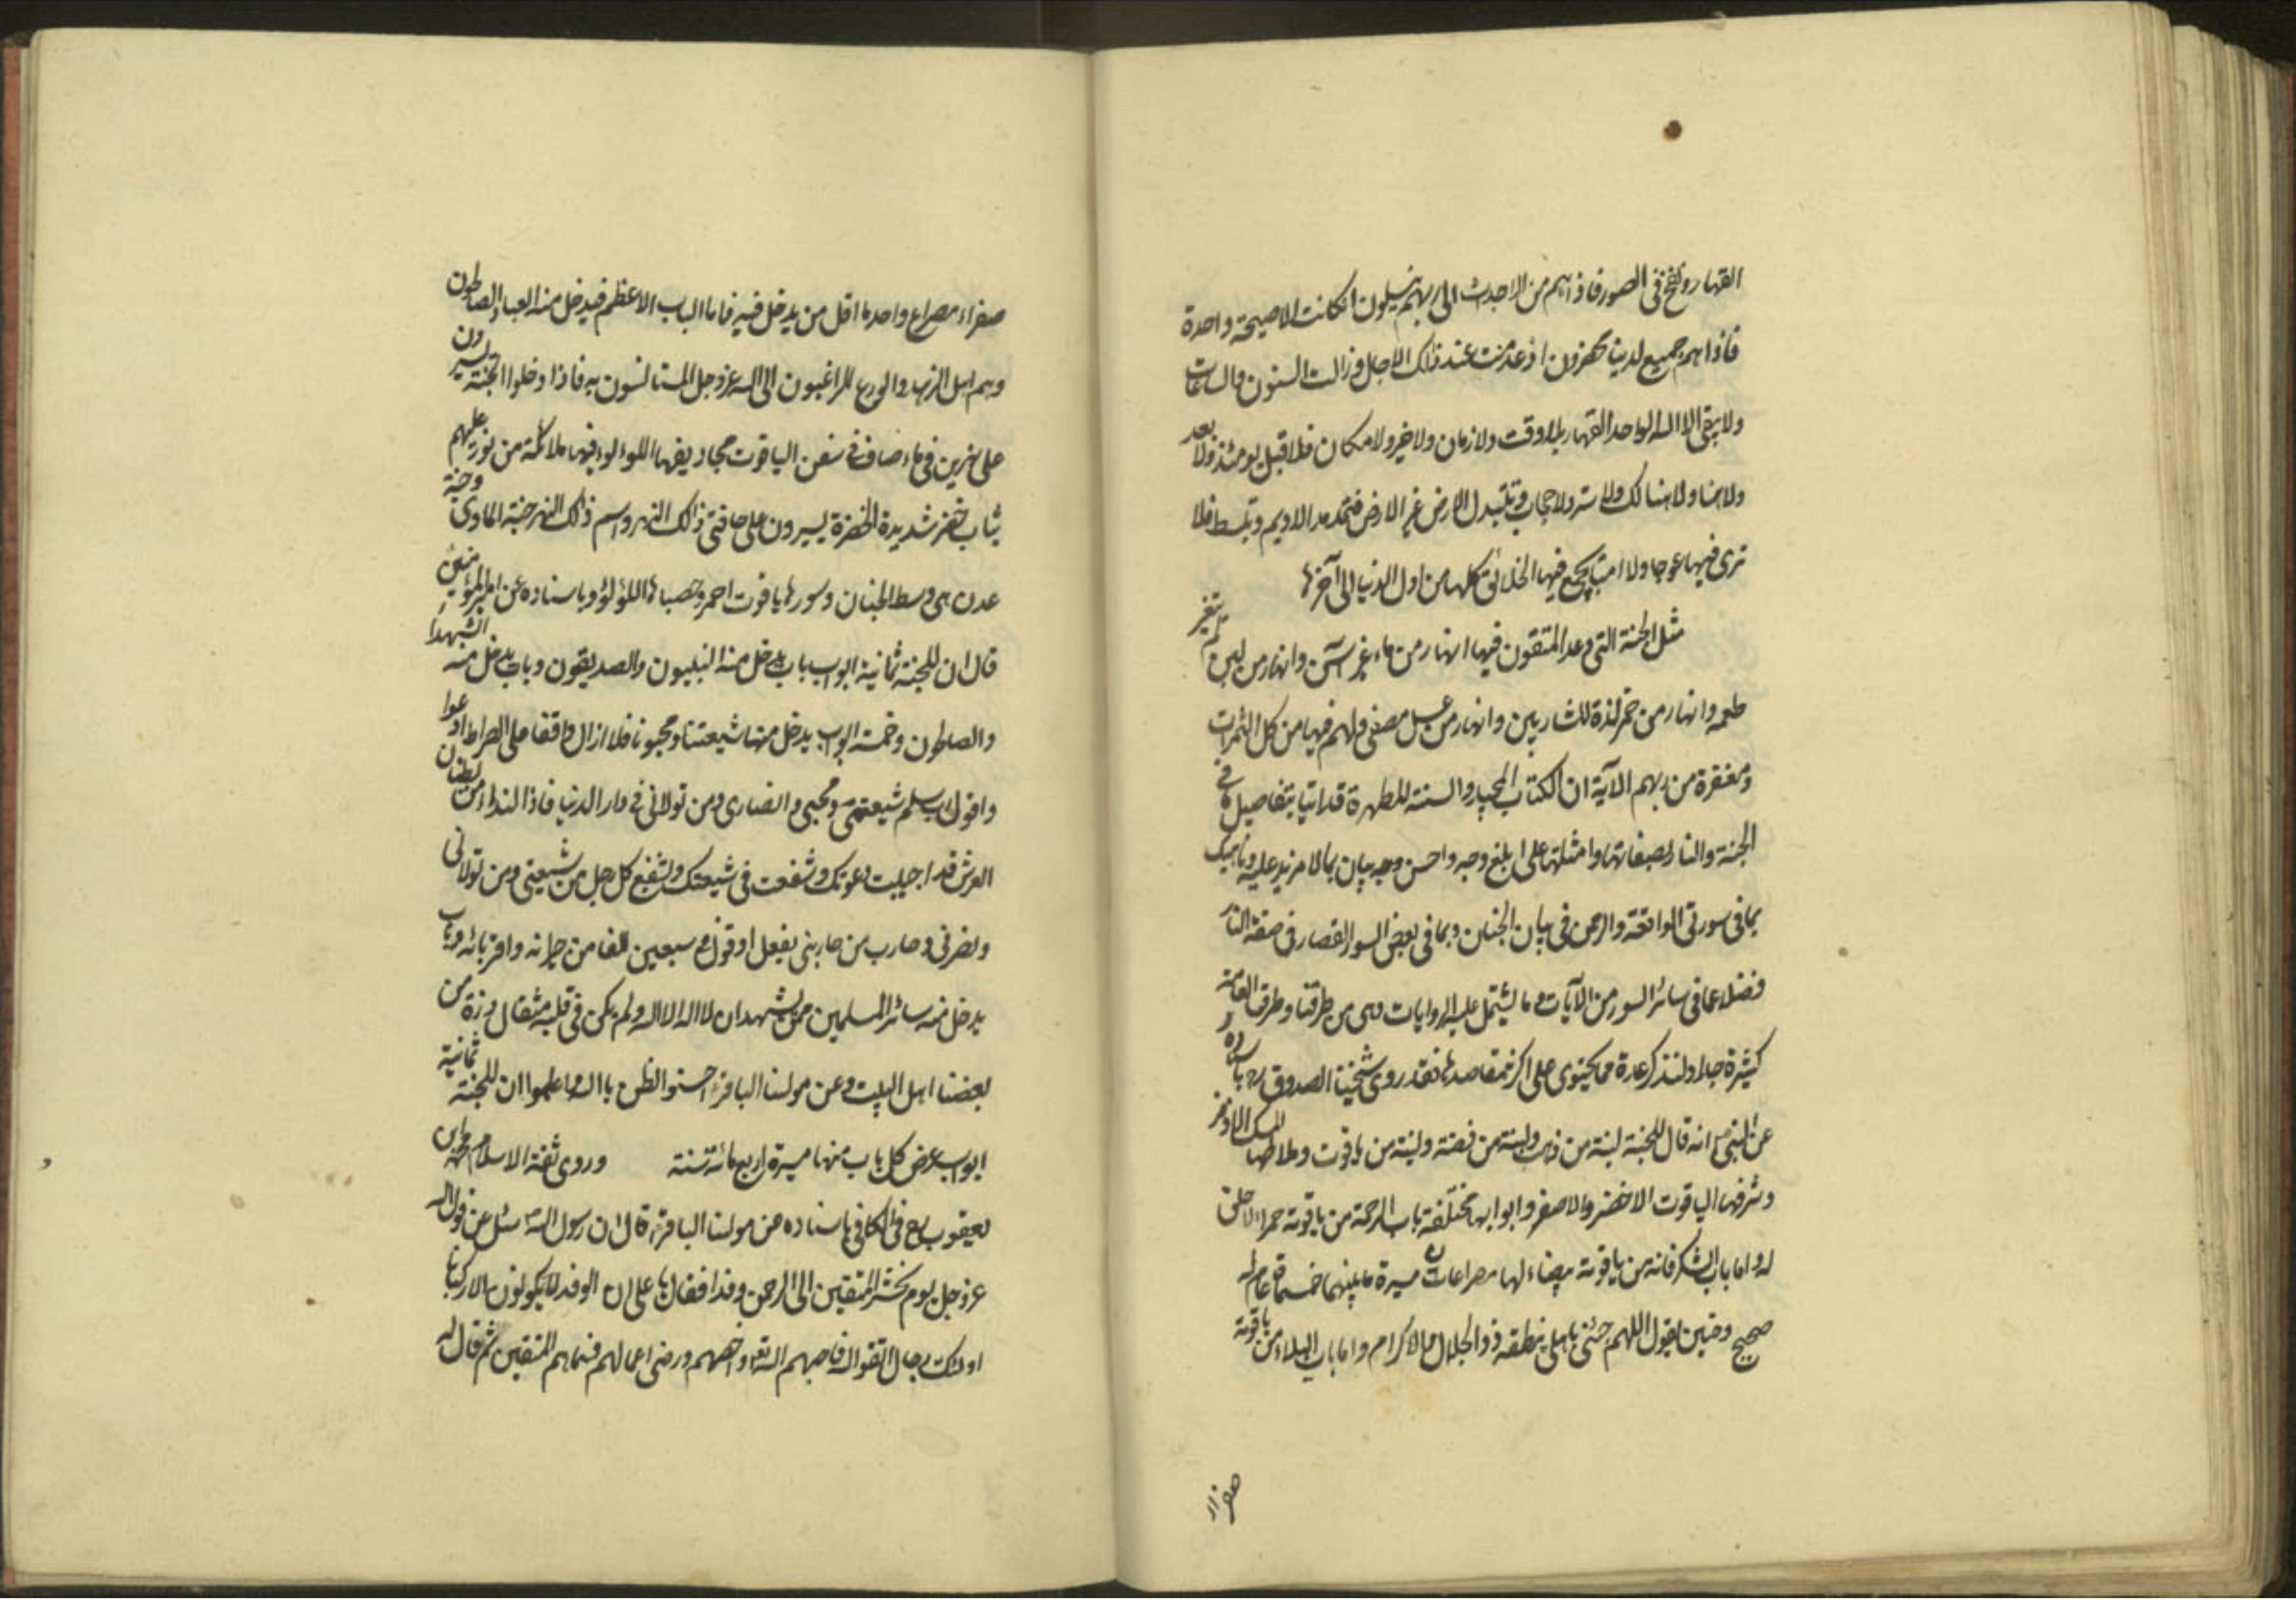 القهار ونفخ فى الصور فاذا هم من الاجدث الى ربهم ينسلون ان كانت الا صيحة واحدة
فاذا هم جميع لدينا محضرون اذ عدمت عند ذلك الاجال وزالت السنون والساعات
ولا يبقى الا الله الواحد القهار بلا وقت ولا زمان ولا خير ولا مكان فلا قبل يومئذ ولا بعد
ولا هنا ولا هنالك ولا ستر ولا حجاب وتتبدل الارض غير الارض فتمد مد الاديم وتبسط فلا
ترى فيها عوجا ولا امتا يجمع فيها الخلائق كلها من اول الدنيا الى آخرها
مثل الجنة التى وعد المتقون فيها انهار من ماء غير آسن وانهار من لبن لم يتغير
طعمه وانهار من خمر لذة للشاربين وانهار من عسل مصفى ولهم فيها من كل الثمرات
ومغفرة من ربهم الآية ان الكتاب المجيد والسنة المطهرة قد اتيا بتفاصيل ما فى
الجنة والنار بصفاتها وامثلتها على ابلغ وجه واحسن وجه بيان بما لا مزيد عليه وناهيك
بما فى سورتى الواقعة والرحمن فى بيان الجنان وبما فى بعض السور القصار فى صفة النار
فضلا عما فى سائر السور من الآيات وما يشتمل عليه الروايات وهى من طرقنا وطرق العامة
كثيرة جدا ولنذكر عدة مما يحتوى على اكثر مقاصدها فقد روى شيخنا الصدوق ره باسناده
عن النبى ص انه قال للجنة لبنة من ذهب ولبنة من فضة ولبنة من ياقوت وملاطها المسك الاذفر
وشرفها الياقوت الاخضر والاصفر وابوابها مختلفة باب الرحمة من ياقوتة حمراء لا حلق
له واما باب الشكر فانه من ياقوتة بيضاء لها مصراعان مسيرة ما بينهما خمسمائة عام له
ضجيج وحنين يقول اللهم جئنى باهلى ينطقه ذو الجلال والاكرام واما باب البلاء من ياقوتة
صفراء
صفراء مصراع واحد ما اقل من يدخل فيه فاما الباب الاعظم فيدخل منه العباد الصالحون
وهم اهل الزهد والورع الراغبون الى الله عز وجل المستانسون به فاذا دخلوا الجنة يسيرون
على نهرين فى ماء صاف فى سفن الياقوت مجاديفها اللؤلوء فيها ملائكة من نور عليهم
ثياب خضر شديدة الخضرة يسيرون على حافتى ذلك النهر واسم ذلك النهر جنة الماوى وجنة
عدن هى وسط الجنان وسورها ياقوت احمر وحصباءها اللؤلؤ وباسناده عن امير المؤمنين
قال ان للجنة ثمانية ابواب باب يدخل منه النبيون والصديقون وباب يدخل منه الشهداء
والصالحون وخمسة ابواب يدخل منها شيعتنا ومحبونا فلا ازال واقفا على الصراط ادعوا
واقول رب سلم شيعتى ومحبى وانصارى ومن تولانى فى دار الدنيا فاذا النداء من بطنان
العرش قد اجيبت دعوتك وشفعت فى شيعتك ويشفع كل رجل من شيعتى ومن تولانى
ونصرنى وحارب من حاربنى بفعل او قول فى سبعين الفا من جيرانه واقربائه وباب
يدخل منه سائر المسلمين ممن يشهد ان لا اله الا الله ولم يكن فى قلبه مثقال ذرة من
بغضنا اهل البيت وعن مولينا الباقر ع احسنوا الظن بالله واعلموا ان للجنة ثمانية
ابواب عرض كل باب منها مسيرة اربعمائة سنة وروى ثقة الاسلام محمد بن
يعقوب ره فى الكافى باسناده عن مولينا الباقر ع قال ان رسول الله ص سئل عن قول الله
عز وجل يوم نحشر المتقين الى الرحمن وفدا فقال يا على ان الوفد لا يكونون الا ركبانا
اولئك رجال اتقوا الله فاحبهم الله تعالى واختصهم ورضى اعمالهم فسماهم المتقين ثم قال له